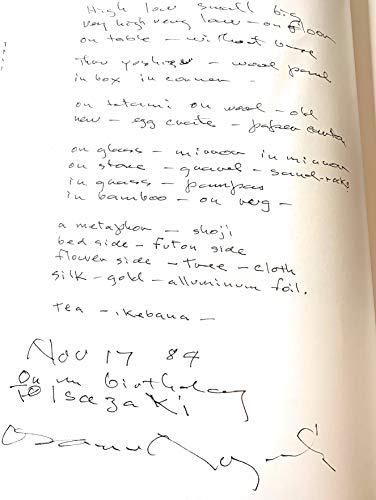 High low small big
very high very low - on floor
on table - without base
Thru yoshizu - wood panel
in box in corner -
on tatami on wood - old
new - egg crate - paper
on glass - mirror in mirror
on stone - gravel - sand - rocks
in grass - pampas
in bamboo - on
a metaphor - shoji
bed side - futon side
flower side - tree - cloth
silk - gold - alluminum foil.
tea - ikebana -
Nov 17 84
On birthday
to Isozaki